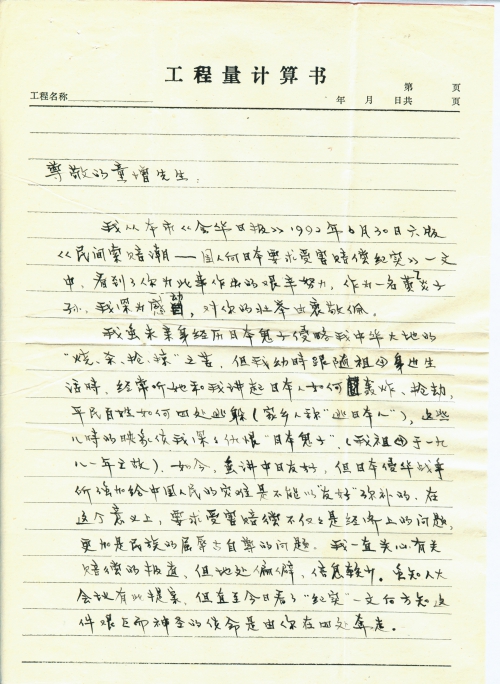 工程量计算书
第 页
工程名称
年 月 日共 页
尊敬的童增先生:
我从本市《金华日报》1992年6月30日六版
《民间索赔潮——国人向日本要求受害赔偿纪实》一文
中，看到了你为此事作出的艰辛努力，作为一名炎黄子
孙，我深为感动，对你的壮举由衷敬佩。
我虽未亲身经历日本鬼子侵略我中华大地的
"烧、杀、抢、掠"之苦，但我幼时跟随祖母身边生
活时，经常听她和我讲起日本人如何轰炸、抢劫，
平民百姓如何四处逃躲（家乡人称"逃日本人"），这些
儿时的映象使我深深仇恨"日本鬼子"，（我祖母于一九
八一年亡故）。如今，虽讲中日友好，但日本侵华战争
所强加给中国人民的灾难是不能以"友好"弥补的。在
这个意义上，要求受害赔偿不仅仅是经济上的问题，
更加是民族的屈辱与自尊的问题。我一直关心有关
赔偿的报道，但地处偏僻，信息较少。虽知人大
会议有此提案，但直至今日看了"纪实"一文后方知这
件艰巨而神圣的使命是由你在四处奔走。